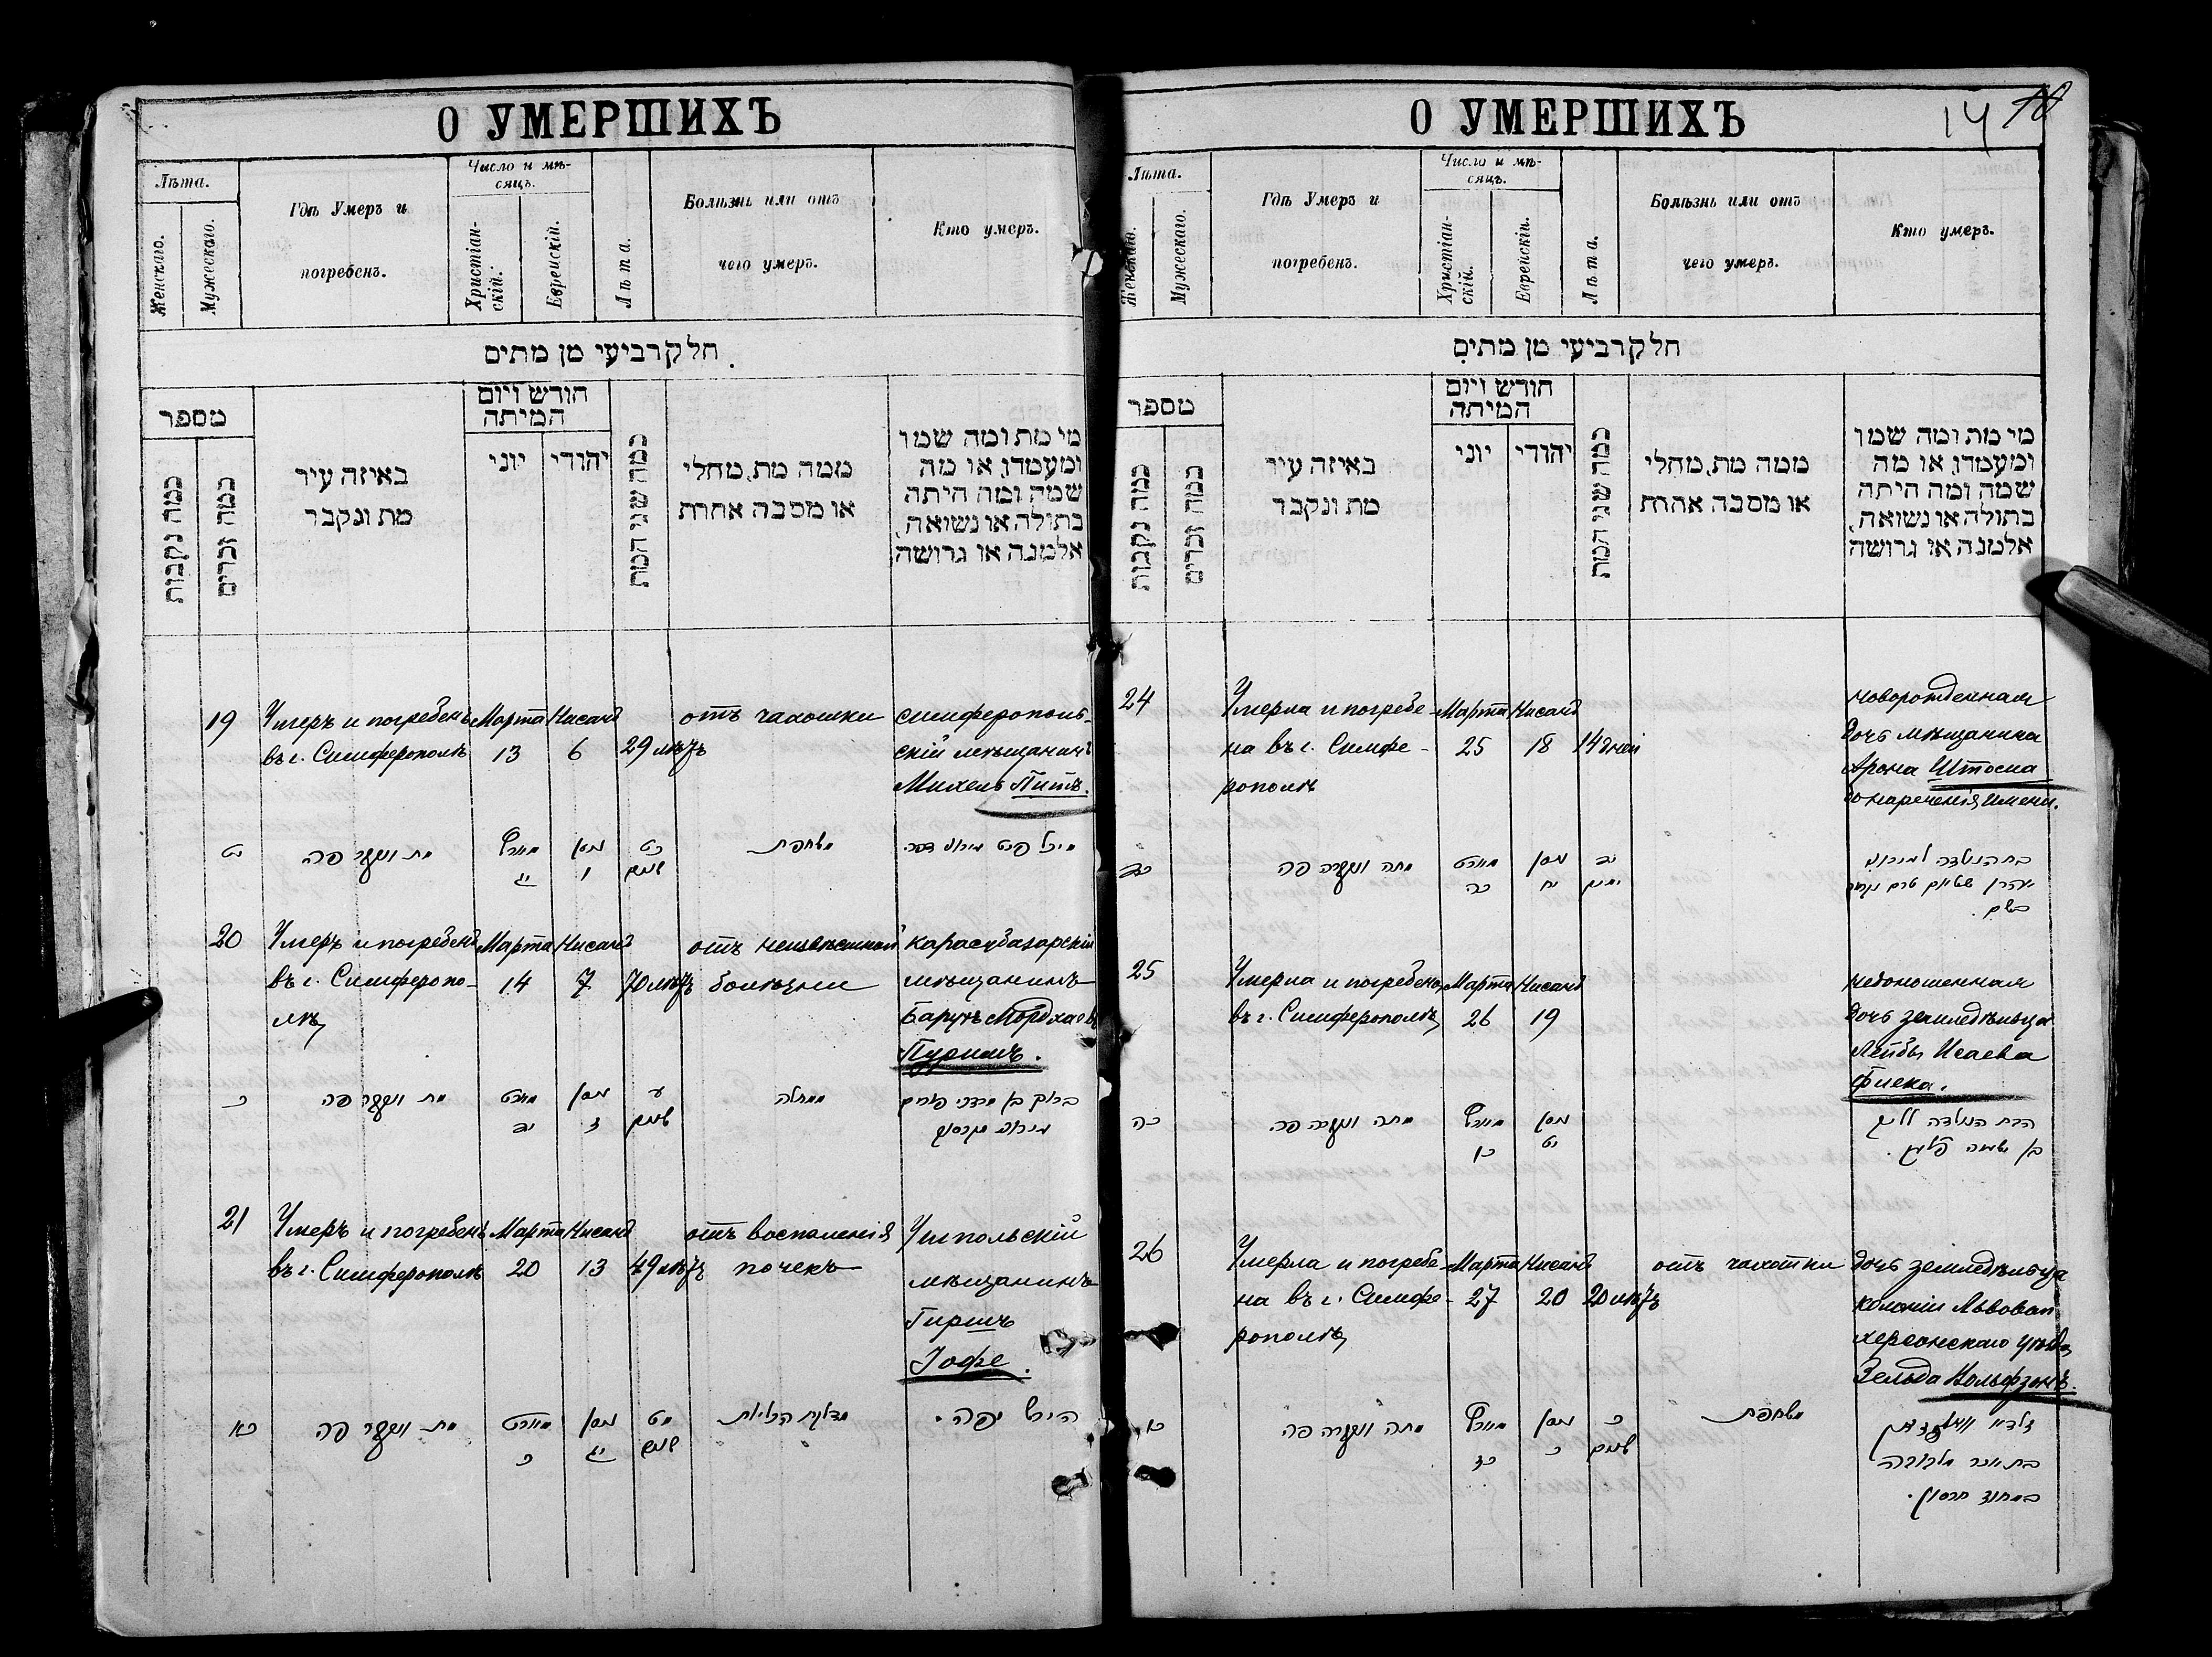 О УМЕРШИХЪ
Лѣта.
Женскаго.
Мужескаго.
Гдѣ Умеръ и
погребенъ.
Число и мѣ-
сяцъ.
Христіан-
скій.
Еврейскій.
Лѣта.
Болѣзнь или отъ
чего умеръ.
Кто умеръ.
חלק רביעי מן מתים
מספר
כמה נקבות
כמה זכרים
באיזה עיר
מת ונקבר
חודש ויום
המיתה
יוני
יהודי
כמה שני המת
ממה מת, מחלי
או מסבה אחרת
מי מת ומה שמו
ומעמדו, או מה
שמה ומה היתה
בתולה או נשואה,
אלמנה או גרושה
19
Умеръ и погребенъ
въ г. Симферополѣ
Марта
13
Нисанъ
6
29 лѣтъ
отъ чахотки
симферополь-
скій мѣщанинъ
Михель Питъ.
יט
מת ונקבר פה
מארט
יג
ניסן
ו
כט
שנים
משחפת
מיכל פיט
20
Умеръ и погребенъ
въ г. Симферопо-
лѣ
Марта
14
Нисанъ
7
70 лѣтъ
отъ неизвѣстной
болѣзни
карасубазарскій
мѣщанинъ
Барухъ Мордхаовъ
Пуримъ.
כ
מת ונקבר פה
מארט
יד
ניסן
ז
ע
שנים
ממחלה
ברוך בן מרדכי פורים
21
Умеръ и погребенъ
въ г. Симферополѣ
Марта
20
Нисанъ
13
49 лѣтъ
отъ воспаленія
почекъ
мѣщанинъ
Гиршъ
Іофе.
כא
מת ונקבר פה
מארט
כ
ניסן
יג
מט
שנים
מדלקת הכליות
הירש יפה.
О УМЕРШИХЪ
14 10
Лѣта.
Женскаго.
Мужескаго.
Гдѣ Умеръ и
погребенъ.
Число и мѣ-
сяцъ.
Христіан-
скій.
Еврейскій.
Лѣта.
Болѣзнь или отъ
чего умеръ.
Кто умеръ.
חלק רביעי מן מתים
מספר
כמה נקבות
כמה זכרים
באיזה עיר
מת ונקבר
חודש ויום
המיתה
יוני
יהודי
כמה שני המת
ממה מת, מחלי
או מסבה אחרת
מי מת ומה שמו
ומעמדו, או מה
שמה ומה היתה
בתולה או נשואה,
אלמנה או גרושה
24
Умерла и погребе-
на въ г. Симфе-
рополѣ
Марта
25
Нисанъ
18
14 дней
новорожденная
дочь мѣщанина
Арона
до нареченія имени.
כד
מתה ונקברה פה
מארט
כה
ניסן
יח
יד
ימים
בת הנולדה
אהרן טרם נקרא
בשם.
25
Умерла и погребена
въ г. Симферополѣ
Марта
26
Нисанъ
19
недоношенная
дочь земледѣльца
Лейбы Исаева
כה
מתה ונקברה פה.
מארט
כו
ניסן
יט
הבת הנולדה לליב
26
Умерла и погребе-
на въ г. Симфе-
рополѣ
Марта
27
Нисанъ
20
20 лѣтъ
отъ чахотки
дочь земледѣльца
колоніи Львовой
херсонскаго уѣзда
Зельда Вольфзонъ.
כו
מתה ונקברה פה
מארט
כז
ניסן
כ
כ
שנים
משחפת
זלדא וואלפזאן
בת אכר
במחוז חרסון.